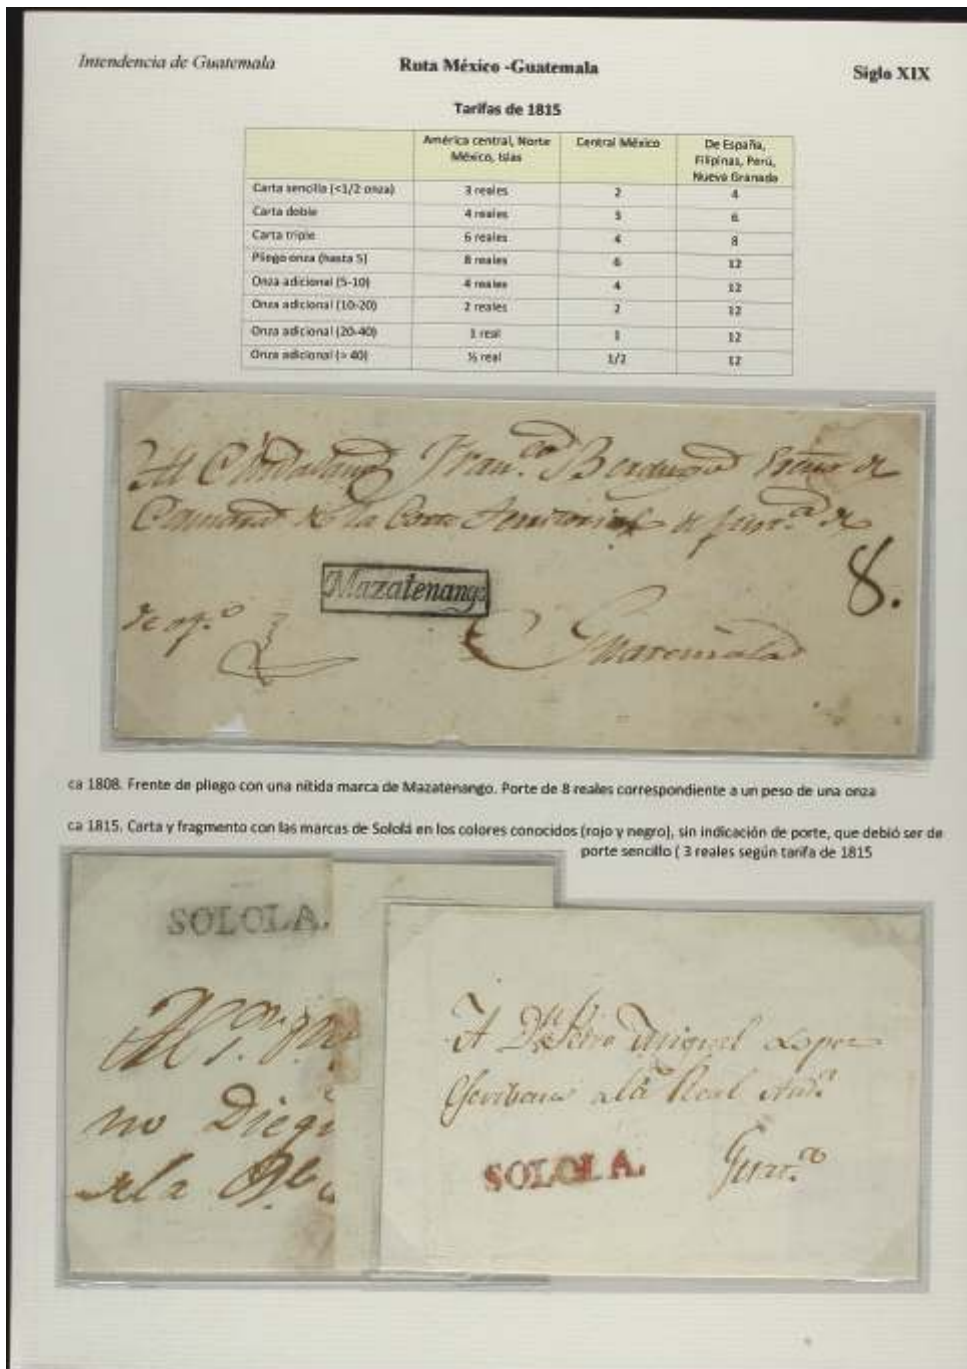 Intendencia de Guatemala
Ruta México -Guatemala
Siglo XIX
Tarifas de 1815
América central, Norte México, Islas
Central México
De España, Filipinas, Perú, Nueva Granada
Carta sencilla (<1/2 onza) 3 reales 2 4
Carta doble 4 reales 3 6
Carta triple 6 reales 4 8
Pliego onza (hasta 5) 8 reales 6 12
Onza adicional (5-10) 4 reales 4 12
Onza adicional (10-20) 2 reales 2 12
Onza adicional (20-40) 1 real 1 12
Onza adicional (> 40) ½ real 1/2 12
Al Ciudadano Fran.co
de la Corte Territorial de
8.
Mazatenango
Guatemala
ca 1808. Frente de pliego con una nítida marca de Mazatenango. Porte de 8 reales correspondiente a un peso de una onza
ca 1815. Carta y fragmento con las marcas de Sololá en los colores conocidos (rojo y negro), sin indicación de porte, que debió ser de
porte sencillo ( 3 reales según tarifa de 1815
SOLOLA.
no Dieg
A Dn Pedro Miguel Lopez
Escribano Real
SOLOLA.